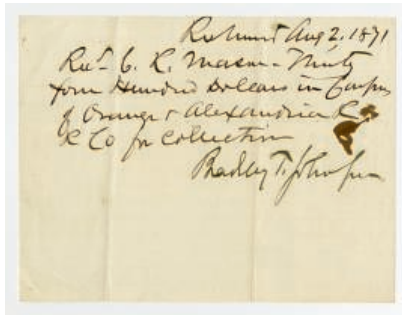 Richmond Aug 2. 1871
Recd. C. R. Mason - Thirty
four Hundred Dollars in Coupons
of Orange & Alexandria R
R Co for Collection
Bradley T. Johnson